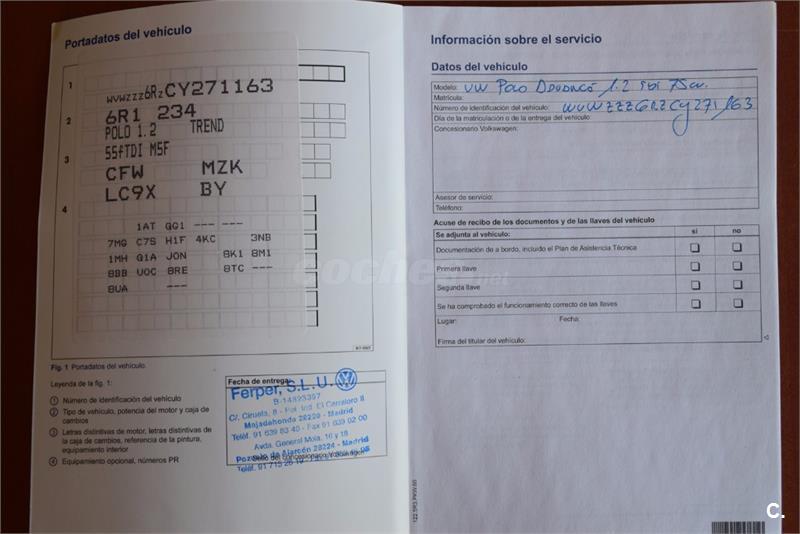 Portadatos del vehículo
1
WVWZZZ6RZCY271163
2
6R1 234
POLO 1.2 TREND
3
55fTDI M5F
CFW MZK
LC9X BY
4
1AT GG1 --- ---
7MG C7S H1F 4KC 3NB
1MH G1A J0N 8K1 8M1
8BB U0C 8RE 8TC ---
8UA ---
coches.net
Fig. 1 Portadatos del vehículo.
Leyenda de la fig. 1:
1 Número de identificación del vehículo
2 Tipo de vehículo, potencia del motor y caja de
cambios
3 Letras distintivas de motor, letras distintivas de
la caja de cambios, referencia de la pintura,
equipamiento interior
4 Equipamiento opcional, números PR
Fecha de entrega:
Ferper, S.L.U.
B-14893397
C/, Ciruela, 8 - Pol. Ind. El Carralero II
Majadahonda 28220 - Madrid
Teléf. 91 639 83 40 - Fax 91 639 02 00
Avda. General Mola, 16 y 18
Pozuelo de Alarcón 28224 - Madrid
Sello del concesionario Volkswagen
Información sobre el servicio
Datos del vehículo
Modelo: VW Polo Advance 1.2 TDI 75cv.
Matrícula:
Número de identificación del vehículo: WVWZZZ6RZCY271163
Día de la matriculación o de la entrega del vehículo:
Concesionario Volkswagen:
Asesor de servicio:
Teléfono:
Acuse de recibo de los documentos y de las llaves del vehículo
Se adjunta al vehículo: sí no
Documentación de a bordo, incluido el Plan de Asistencia Técnica
Primera llave
Segunda llave
Se ha comprobado el funcionamiento correcto de las llaves
Lugar: Fecha:
Firma del titular del vehículo:
C.